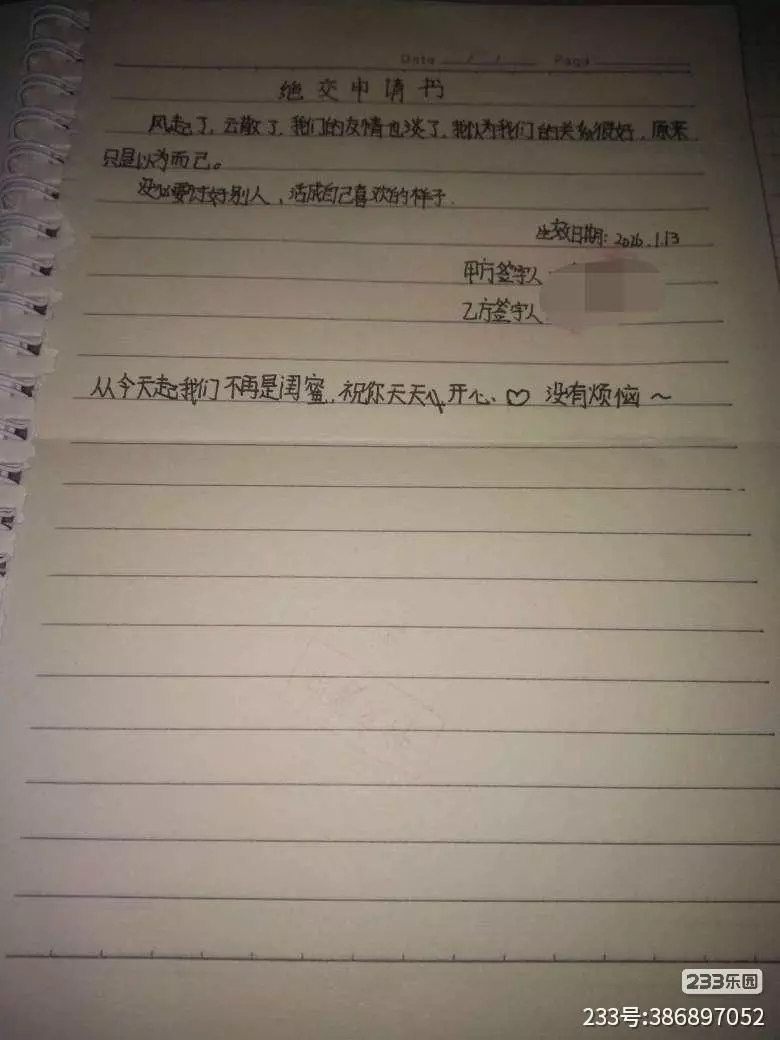 Date
Page
绝交申请书
风起了，云散了，我们的友情也淡了，我以为我们的关系很好，原来
只是以为而已。
没必要讨好别人，活成自己喜欢的样子.
生效日期：2026.1.13
甲方签字人
乙方签字人
从今天起我们不再是闺蜜，祝你天天开心、♡ 没有烦恼～
233乐园
233号:386897052